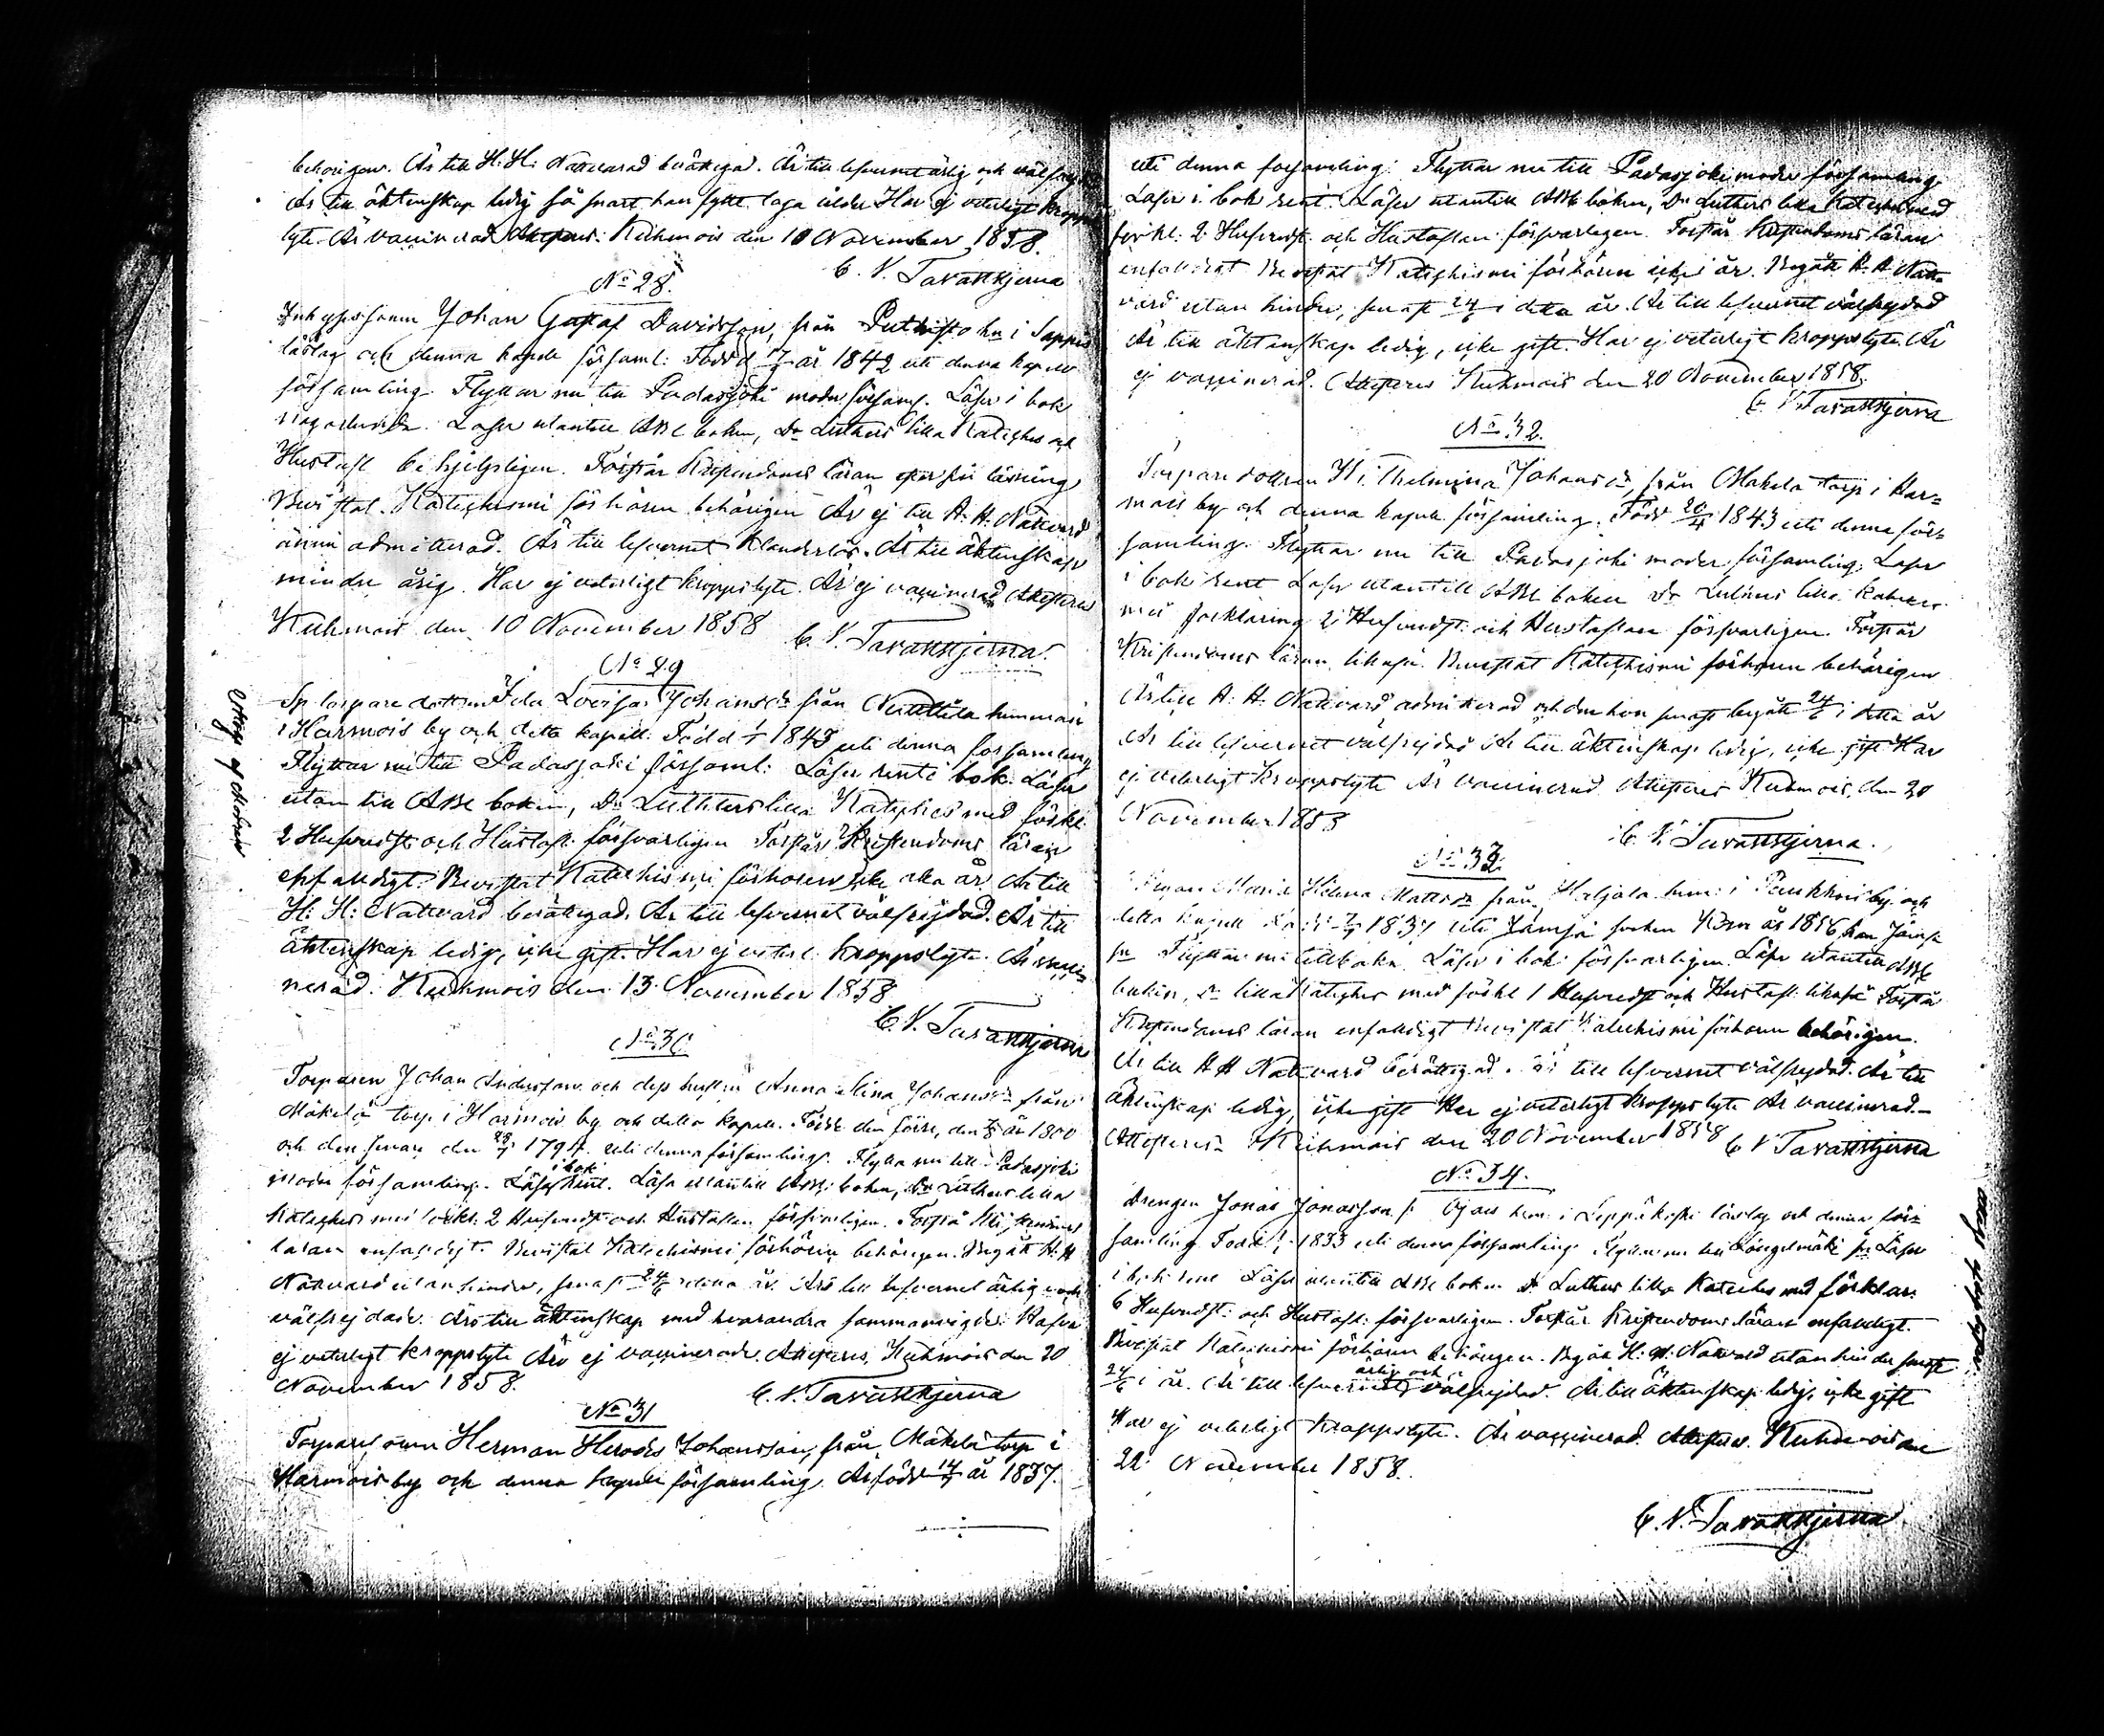 behörigen. Är till H: H: Nattvard berättigad. Är till lefvernet ärlig och välfrejdad
Är till äktenskap ledig så snart han fyllt laga ålder Har ej veterligt kropps
lyte. Är vaccinerad Attesteras. Kuhmois den 10 November 1858.
C. V. Tavaststjerna
No 28.
Inhyses sonen Johan Gustaf Davidsson, från hn i Sappis
låslag och denna kapell församl: Född d år 1842 uti denna kapell
församling. Flyttar nu till Padasjoki moder församl. Läser i bok
någorlunda. Läser utantill ABC boken, Dr Luthers lilla Kateches och
Hustafl behjelpligen. Förstår Kristendoms läran efter sin läsning
Bevistat Katechismi förhören behörigen Är ej till H. H. Nattvard
ännu admitterad. Är till lefvernet klanderlös. Är till äktenskap
minder årig. Har ej veterligt kroppslyte. Är ej vaccinerad Attesteras
Kuhmois den 10 November 1858
C. V. Tavaststjerna.
No 29
Sp torpare dottren Ida Lovisa Johansdr från hemman
i Harmois by och detta kapell. Född 1843 uti denna församling
Flyttar nu till Padasjoki församl: Läser rent i bok. Läser
utan till ABC boken, Dr Luthers lilla Kateches med förkl.
2 Hufvudst och Hustafl. försvarligen Förstår Kristendoms läran
enfaldigt. Bevistat Katechismi förhören icke alla år. Är till
H: H: Nattvard berättigad. Är till lefvernet välfrejdad. Är till
äktenskap ledig, icke gift. Har ej veterl. kroppslyte. Är vacci-
nerad. Kuhmois den 13 November 1858
C. V. Tavaststjerna
No 30
Torparen Johan Andersson och dess hustru Anna Stina Johansdr från
Mäkelä torp i Harmois by och detta kapell. Född den förre, den år 1800
och den senare den 179 uti denna församling. Flytta nu till Padasjoki
moder församling. Läsa i bok rent. Läsa utantill ABC boken, Dr Luthers lilla
Kateches med förkl. 2 Hufvudst och Hustaflan försvarligen. Förstå Kristendoms
läran enfaldigt. Bevistat Katechismi förhören behörigen. Begått H. H
Nattvard utan hinder, senast 24/6 detta år. Äro till lefvernet ärlig och
välfrejdade. Äro till äktenskap med hvarandra sammanvigde. Hafva
ej veterligt kroppslyte Äro ej vaccinerade. Attesteras, Kuhmois den 20
November 1858.
C. V. Tavaststjerna
No 31
Torpare sonen Herman Herodes Johansson, från Mäkelä torp i
Harmois by och denna kapell församling. Är född år 1837.
uti denna församling. Flyttar nu till Padasjoki moder församling.
Läser i bok rent. Läser utantill ABC boken, Dr Luthers lilla Kateches med
förkl: 2 Hufvudst och Hustaflan försvarligen. Förstår Kristendoms läran
enfaldigt Bevistat Katechismi förhören icke i år. Begått H. H Natt-
vard utan hinder, senast 24/6 i detta år. Är till lefvernet välfrejdad
Är till äktenskap ledig, icke gift. Har ej veterligt kroppslyte. Är
ej vaccinerad. Attesteras Kuhmois den 20 November 1858.
C. V. Tavaststjerna
No 32.
Torpare dottren Wilhelmina Johansdr, från Mäkelä torp i Har-
mois by och denna kapell församling. Född 1843 uti denna för-
samling. Flyttar nu till Padasjoki moder församling. Läser
i bok rent Läser utantill ABC boken Dr Luthers lilla kateches
med förklaring 2 Hufvudst: och Hustaflan försvarligen. Förstår
Kristendoms läran likaså. Bevistat Katechismi förhören behörigen
Är till H: H: Nattvard admitterad och den hon senast begått 24/6 i detta år
Är till lefvernet välfrejdad Är till äktenskap ledig, icke gift Har
ej veterligt kroppslyte Är vaccinerad Attesteras Kuhmois, den 20
November 1858
C. V. Tavaststjerna.
No 33
Pigan Maria Helena Mattsdr från hem: i Pankkois by och
detta kapell 1837 uti Jämsä socken Kom år 1856 från Jämsä
Flyttar nu tillbaka. Läser i bok försvarligen. Läser utantill ABC
boken, Dr lilla Kateches med förkl 1 Hufvudst och Hustafl. likaså Förstår
Kristendoms läran enfaldigt Bevistat Katechismi förhören behörigen.
Är till H H Nattvard berättigad. Är till lefvernet välfrejdad. Är till
Äktenskap ledig, icke gift Har ej veterligt kroppslyte Är vaccinerad.-
Attesteras Kuhmois den 20 November 1858 C V Tavaststjerna
No 34.
Drengen Jonas Jonasson hem: i Leppäkoski låslag och denna för-
samling Född 1833 uti denna församling. Flyttar nu till Längelmäki Läser
i bok rent Läser utantill ABC boken Dr Luthers lilla Kateches med förklar.
6 Hufvudst: och Hustafl: försvarligen. Förstår Kristendoms läran enfaldigt.
Bevistat Katechismi förhören behörigen. Begått H: H: Nattvard utan hinder senast
24/6 i år. Är till lefvernet ärlig och välfrejdad. Är till äktenskap ledig, icke gift
Har ej veterligt kroppslyte. Är vaccinerad. Attesteras. Kuhmois den
22 November 1858.
C. V. Tavaststjerna